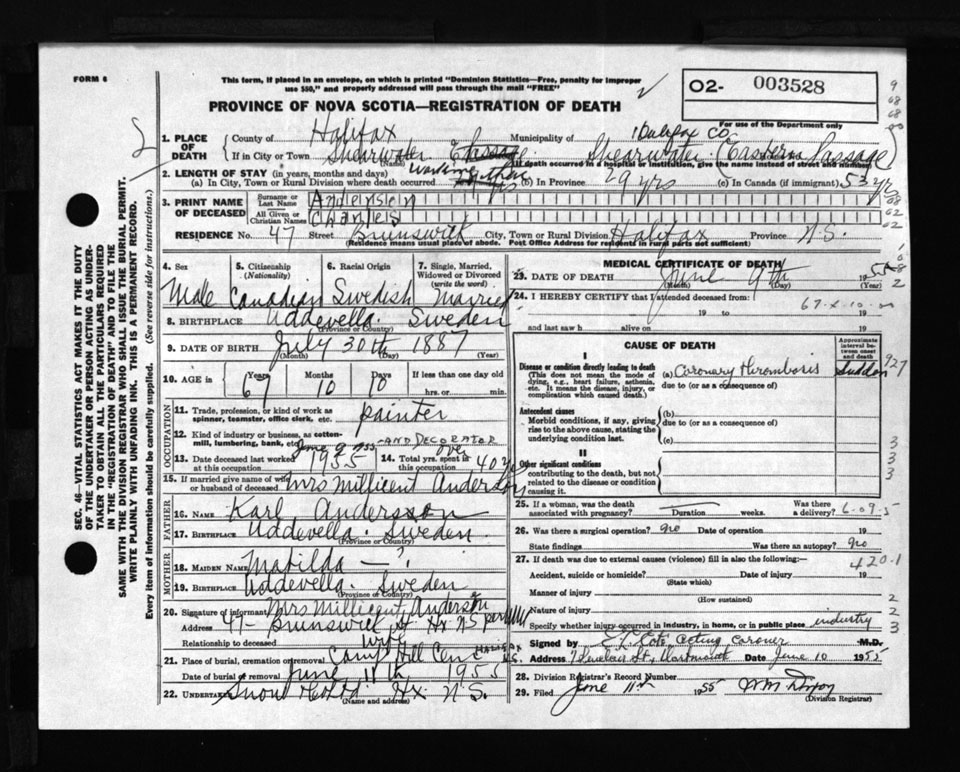 FORM 6
This form, if placed in an envelope, on which is printed "Dominion Statistics—Free, penalty for improper
use $50," and properly addressed will pass through the mail "FREE"
PROVINCE OF NOVA SCOTIA—REGISTRATION OF DEATH
02- 003528
For use of the Department only
1. PLACE OF DEATH County of Halifax Municipality of Halifax Co
If in City or Town Shearwater E Passage Shearwater (Eastern Passage)
(Name) If death occurred in a hospital or institution, give the name instead of street and number
2. LENGTH OF STAY (in years, months and days)
(a) In City, Town or Rural Division where death occurred (b) In Province 29 yrs (c) In Canada (if immigrant) 53 yrs
3. PRINT NAME OF DECEASED Surname or Last Name Anderson
All Given or Christian Names Charles
RESIDENCE No. 47 Street Brunswick City, Town or Rural Division Halifax Province N.S.
(Residence means usual place of abode. Post Office Address for residents in rural parts not sufficient)
4. Sex Male
5. Citizenship (Nationality) Canadian
6. Racial Origin Swedish
7. Single, Married, Widowed or Divorced (write the word) Married
8. BIRTHPLACE Uddevella. Sweden
(Province or Country)
9. DATE OF BIRTH July 30th 1887
(Month) (Day) (Year)
10. AGE in Years 67 Months 10 Days 10 If less than one day old
hrs. or min.
OCCUPATION
11. Trade, profession, or kind of work as spinner, teamster, office clerk, etc. painter
12. Kind of industry or business, as cotton-mill, lumbering, bank, etc. AND DECORATOR
13. Date deceased last worked at this occupation June 9 1955
14. Total yrs. spent in this occupation over 40 y
15. If married give name of wife or husband of deceased Mrs Millicent Anderson
FATHER
16. NAME Karl Andersson
17. BIRTHPLACE Uddevella. Sweden
(Province or Country)
MOTHER
18. MAIDEN NAME Matilda — ?
19. BIRTHPLACE Uddevella. Sweden
(Province or Country)
20. Signature of informant Mrs Millicent Anderson
Address 47- Brunswick St Hx NS
Relationship to deceased wife
21. Place of burial, cremation or removal Camp Hill Cem HALIFAX N.S.
Date of burial or removal June 11th 1955
22. UNDERTAKER Snow Co Ltd. Hx. N.S.
(Name and address)
MEDICAL CERTIFICATE OF DEATH
23. DATE OF DEATH June 9th 1955
(Month) (Day)
24. I HEREBY CERTIFY that I attended deceased from:
19 to 19
and last saw h alive on 19
CAUSE OF DEATH
Approximate interval between onset and death
I
Disease or condition directly leading to death
(This does not mean the mode of dying, e.g., heart failure, asthenia, etc. It means the disease, injury, or complication which caused death.)
(a) Coronary Thrombosis Sudden
due to (or as a consequence of)
Antecedent causes
Morbid conditions, if any, giving rise to the above cause, stating the underlying condition last.
(b)
due to (or as a consequence of)
(c)
II
Other significant conditions
contributing to the death, but not related to the disease or condition causing it.
25. If a woman, was the death associated with pregnancy? Duration weeks. Was there a delivery?
26. Was there a surgical operation? no Date of operation 19
State findings Was there an autopsy? no
27. If death was due to external causes (violence) fill in also the following:—
420.1
Accident, suicide or homicide? Date of injury 19
(State which)
Manner of injury
(How sustained)
Nature of injury
Specify whether injury occurred in industry, in home, or in public place industry
Signed by Acting Coroner M.D.
Address Dartmouth Date June 10 1955
28. Division Registrar's Record Number
29. Filed June 11th 1955
(Division Registrar)
SEC. 46—VITAL STATISTICS ACT MAKES IT THE DUTY
OF THE UNDERTAKER OR PERSON ACTING AS UNDER-
TAKER TO OBTAIN ALL THE PARTICULARS REQUIRED
IN THE "REGISTRATION OF DEATH" AND TO FILE THE
SAME WITH THE DIVISION REGISTRAR WHO SHALL ISSUE THE BURIAL PERMIT.
WRITE PLAINLY WITH UNFADING INK. THIS IS A PERMANENT RECORD.
Every item of information should be carefully supplied. (See reverse side for instructions.)